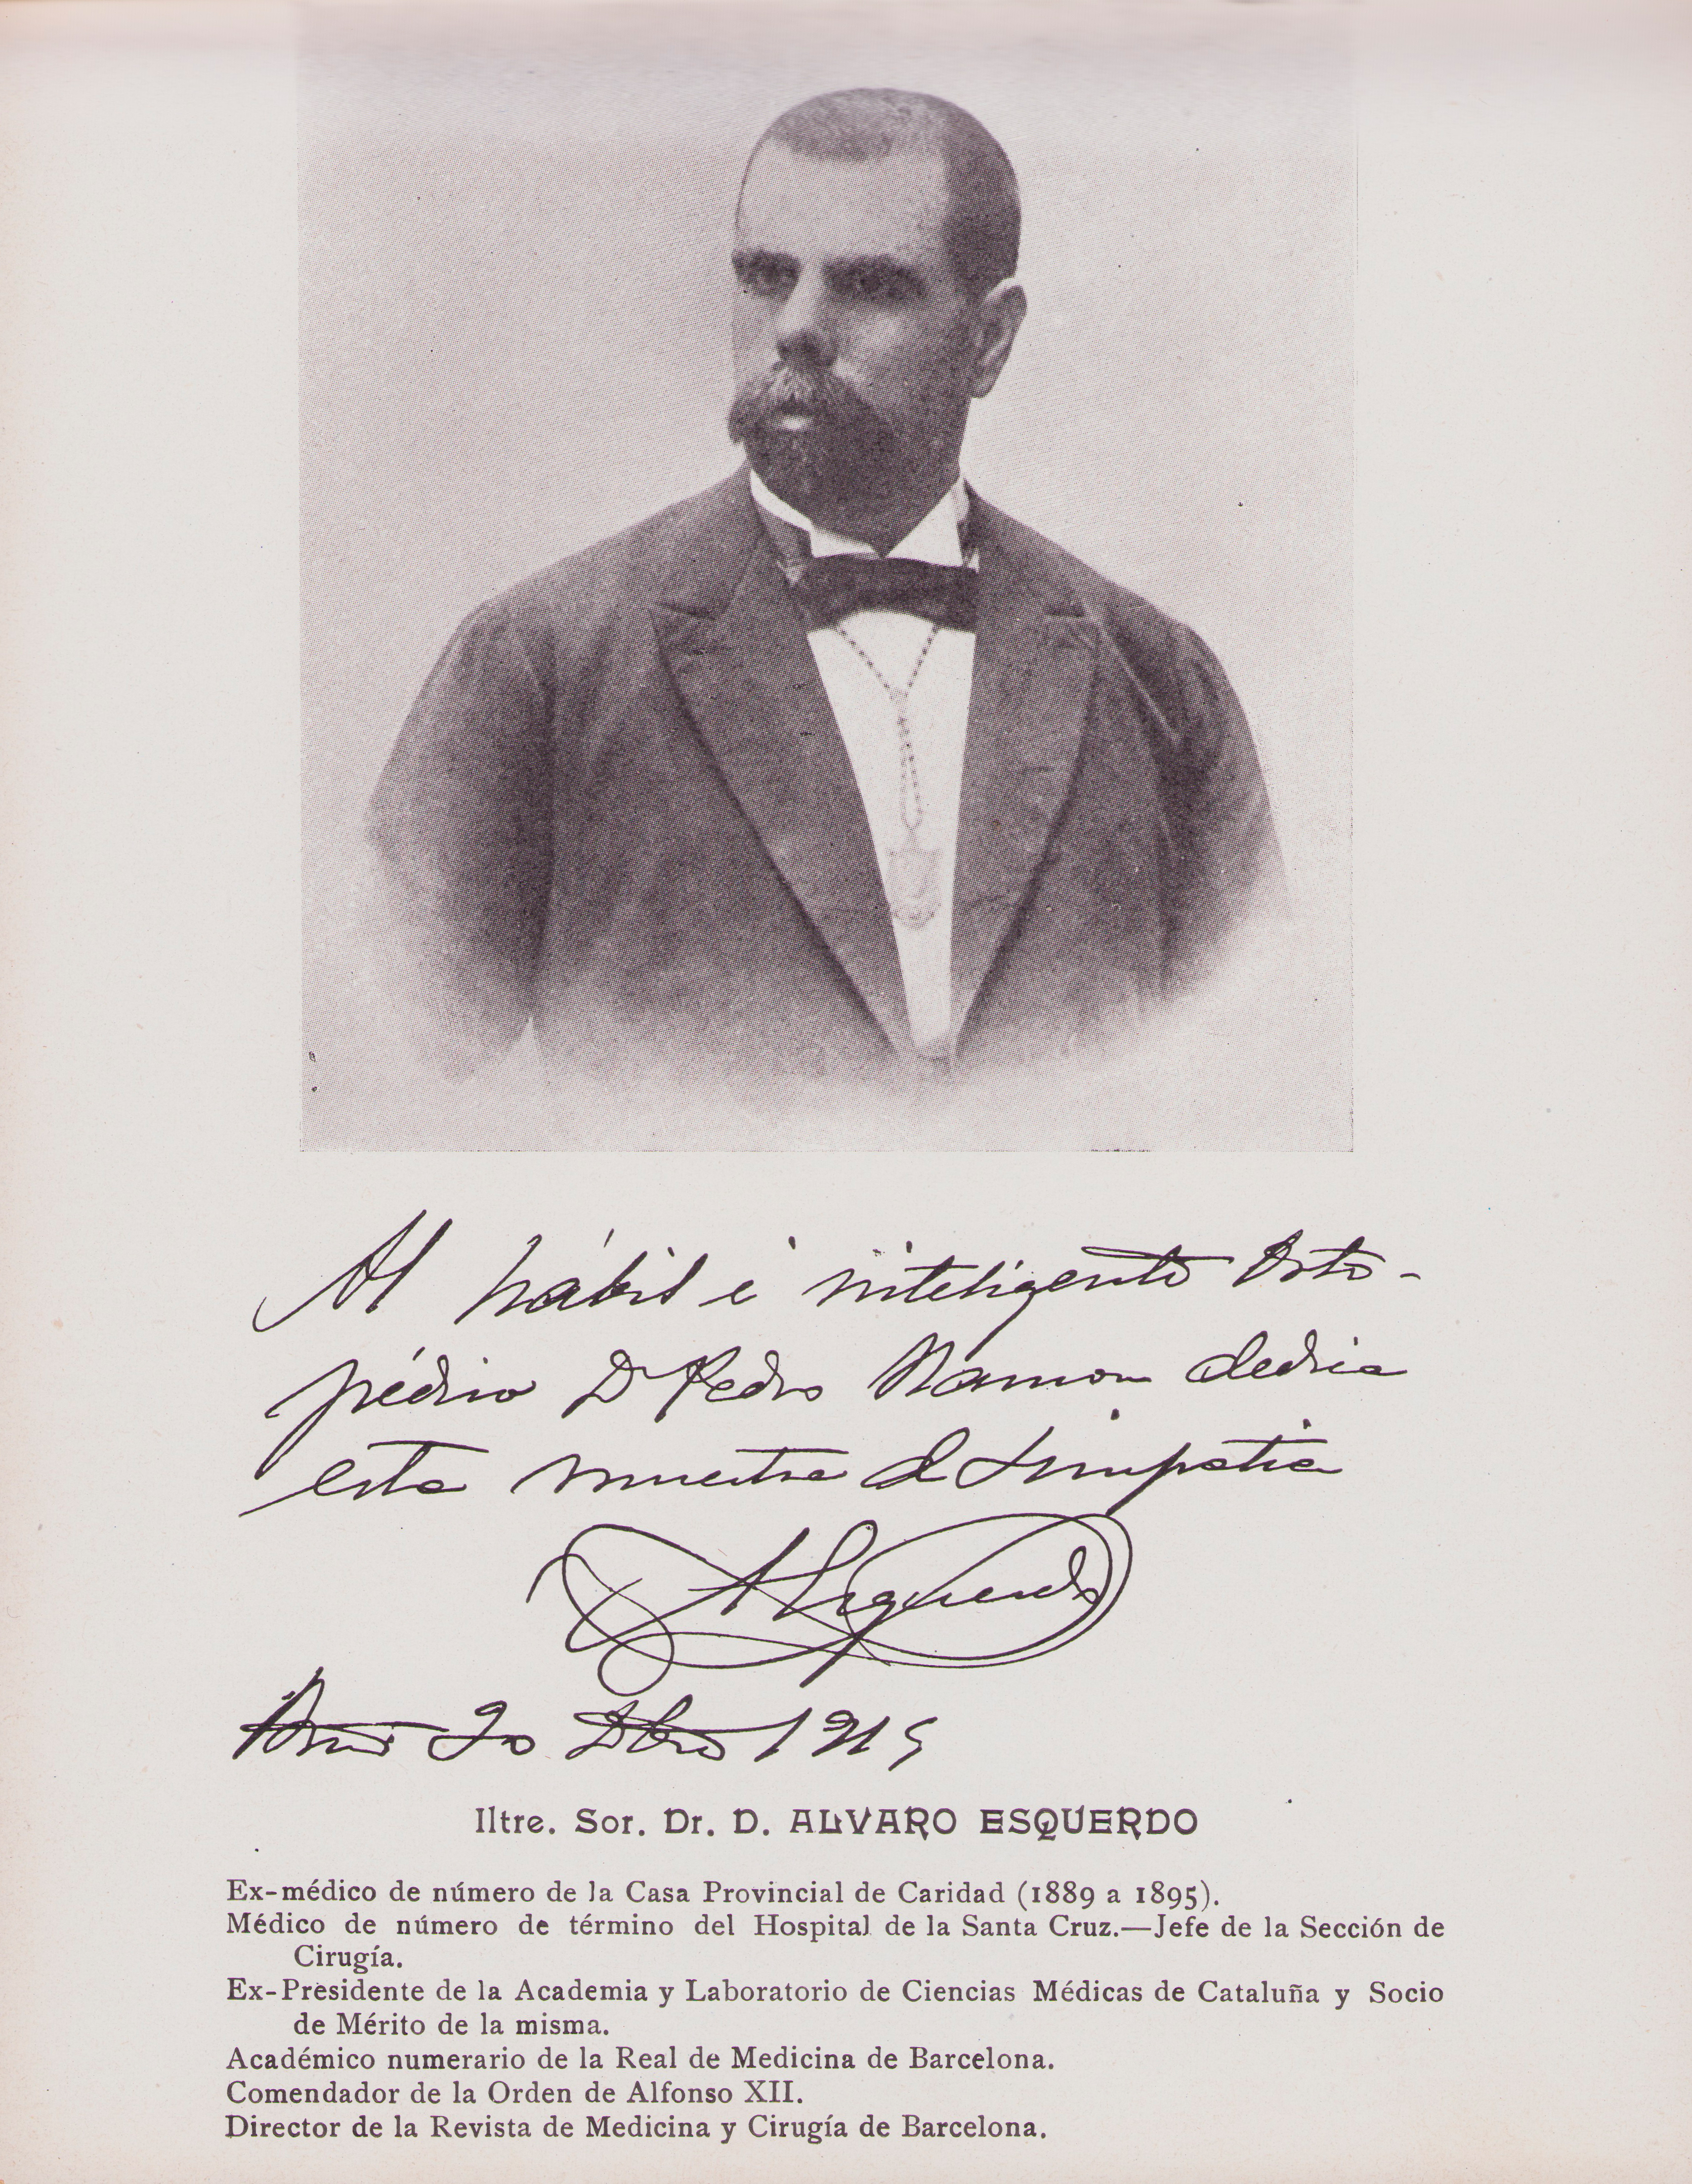 Al hábil e inteligente Orto-
pédico D Pedro Ramon dedica
esta muestra d simpatia
AEsquerdo
20 1915
Iltre. Sor. Dr. D. ALVARO ESQUERDO
Ex-médico de número de la Casa Provincial de Caridad (1889 a 1895).
Médico de número de término del Hospital de la Santa Cruz.—Jefe de la Sección de
Cirugía.
Ex-Presidente de la Academia y Laboratorio de Ciencias Médicas de Cataluña y Socio
de Mérito de la misma.
Académico numerario de la Real de Medicina de Barcelona.
Comendador de la Orden de Alfonso XII.
Director de la Revista de Medicina y Cirugía de Barcelona.